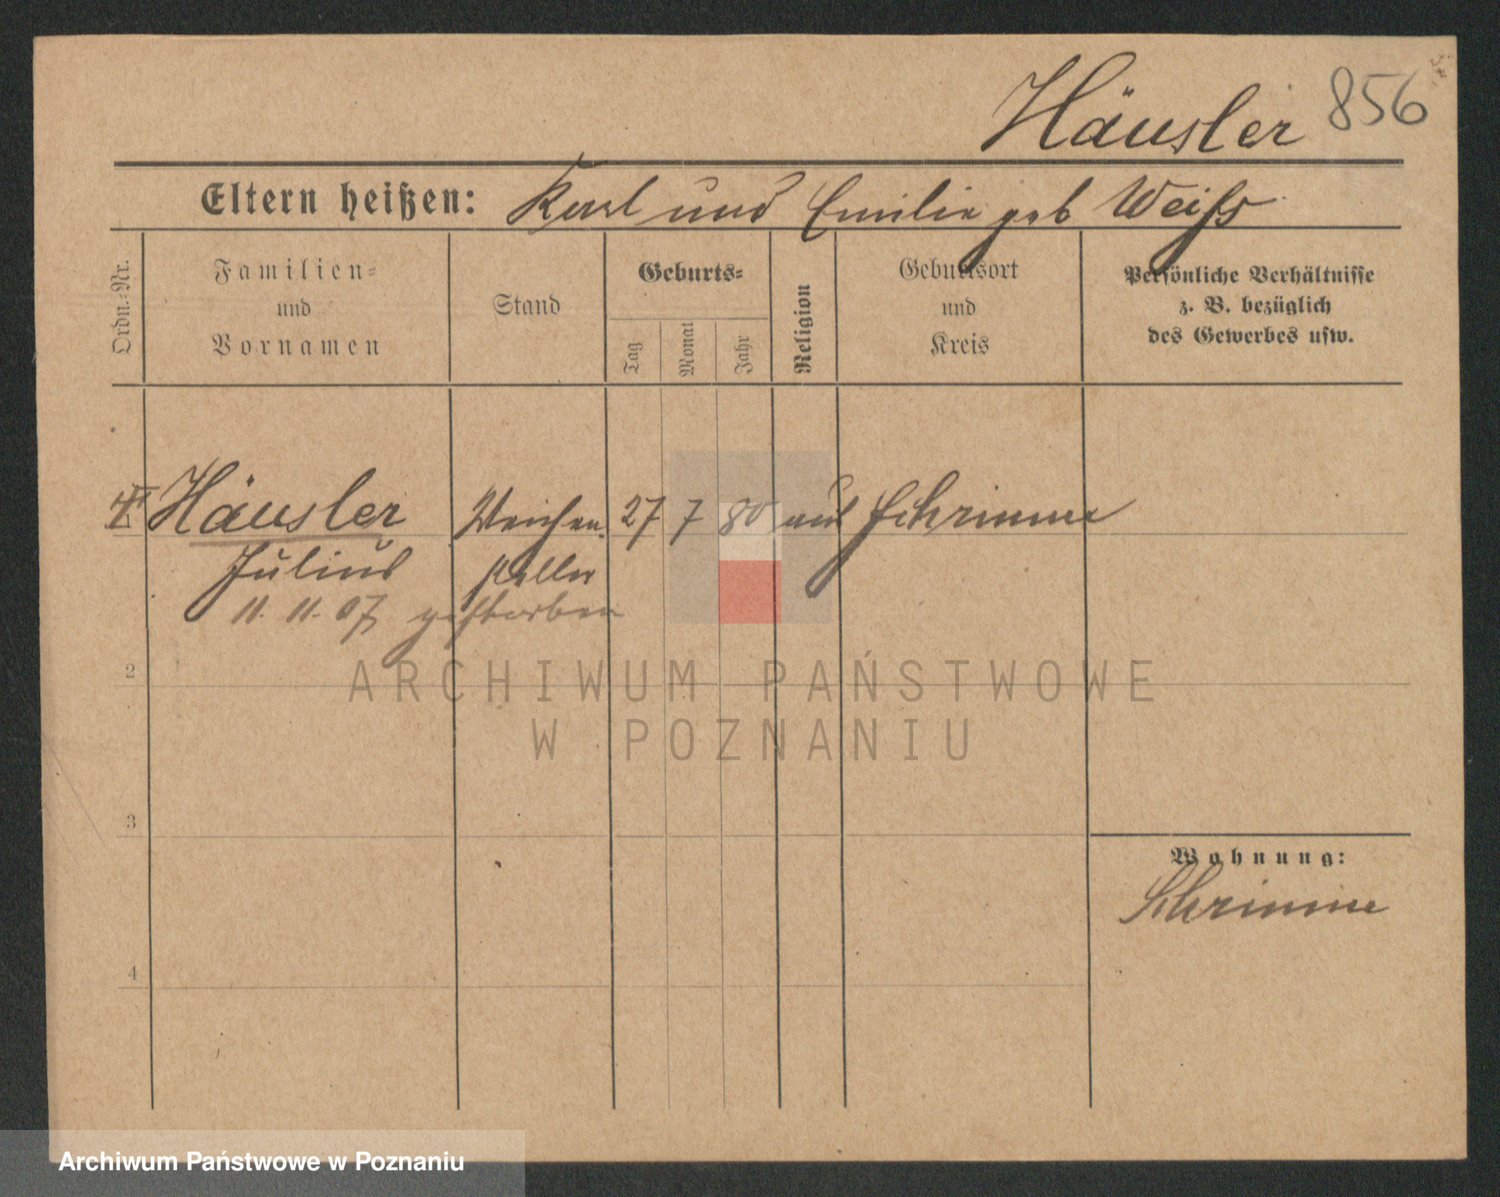 Häusler 856
Eltern heißen: Karl und Emilie geb Weiss
Ordn.-Nr.
Familien-
und
Vornamen
Stand
Geburts-
Tag
Monat
Jahr
Religion
Geburtsort
und
Kreis
Persönliche Verhältnisse
z. B. bezüglich
des Gewerbes usw.
Häusler Weichen 27 7 80 Schrimm
Julius steller
11. 11. 07 gestorben
2
ARCHIWUM PAŃSTWOWE
W POZNANIU
3
Wohnung:
Schrimm
4
Archiwum Państwowe w Poznaniu